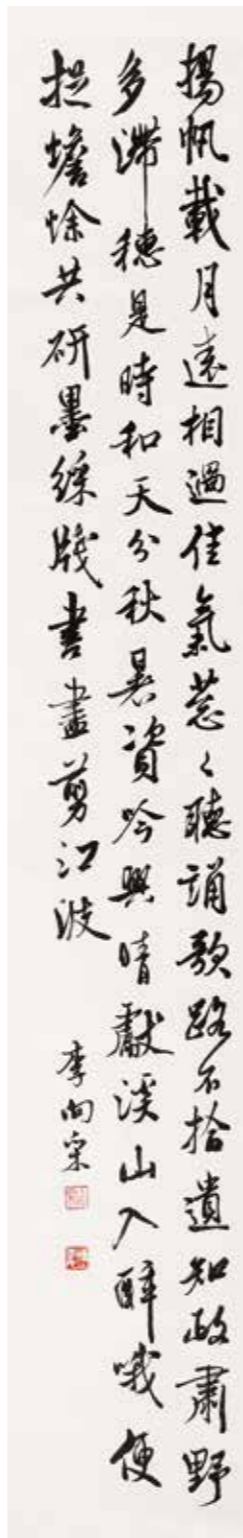 揚帆載月遠相過佳氣葱々聽誦歌路不拾遺知政肅野
多滯穗是時和天分秋暑資吟興晴獻溪山入醉哦便
捉蟾蜍共研墨綵牋書盡剪江波
李向寀